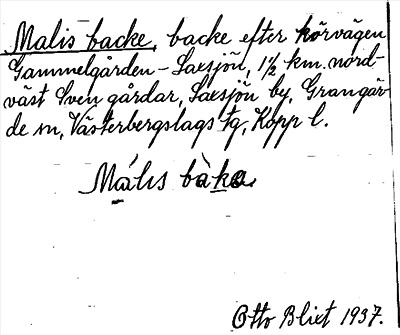 Malis backe, backe efter körvägen
Gammelgården – Saxsjön, 1½ km. nord-
väst Sven gårdar, Saxsjön by, Grangär-
de sn, Västerbergslags tg, Kopp l.
Málıs bàka
Otto Blixt 1937.